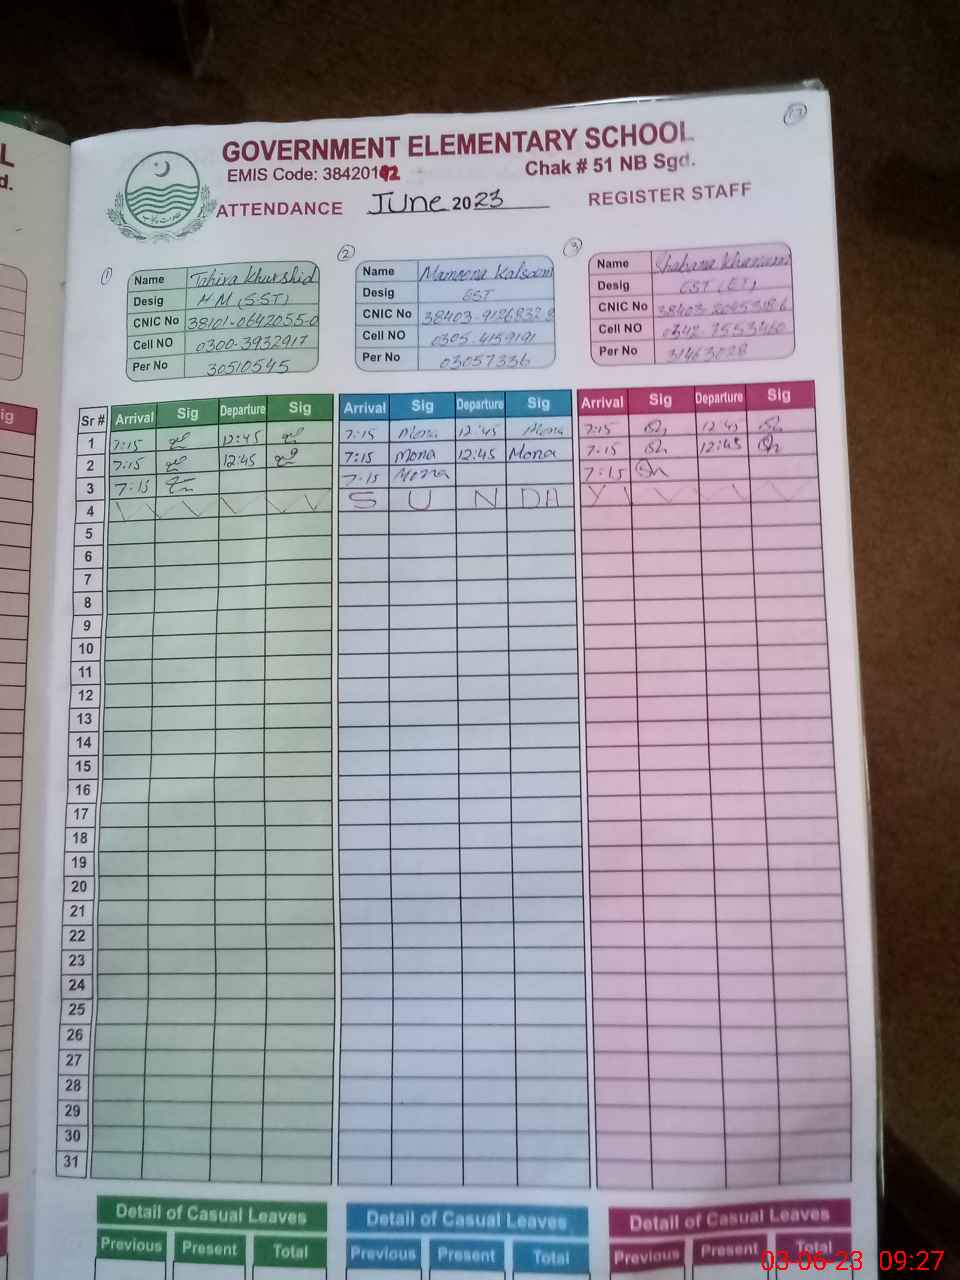 L
d.
ig
17
GOVERNMENT ELEMENTARY SCHOOL
EMIS Code: 38420192
Chak # 51 NB Sgd.
ATTENDANCE June 2023 REGISTER STAFF
1 2 3
Name Tahira Khurshid Name Kalsoom Name Shabana
Desig HM (SST) Desig EST Desig EST
CNIC No 38101-0642055-0 CNIC No 38403-9126832-8 CNIC No
Cell NO 0300-3932917 Cell NO 0305-4159191 Cell NO 0342-7553460
Per No 30510545 Per No 03057336 Per No 31463028
Sr # Arrival Sig Departure Sig Arrival Sig Departure Sig Arrival Sig Departure Sig
1 7:15 12:45 7:15 Mona 12:45 Mona 7:15 12:45
2 7:15 12:45 7:15 Mona 12:45 Mona 7:15 12:45
3 7:15 7:15 Mona 7:15
4 S U N DA Y
5
6
7
8
9
10
11
12
13
14
15
16
17
18
19
20
21
22
23
24
25
26
27
28
29
30
31
Detail of Casual Leaves Detail of Casual Leaves Detail of Casual Leaves
Previous Present Total Previous Present Total Previous Present Total
03-06-23 09:27